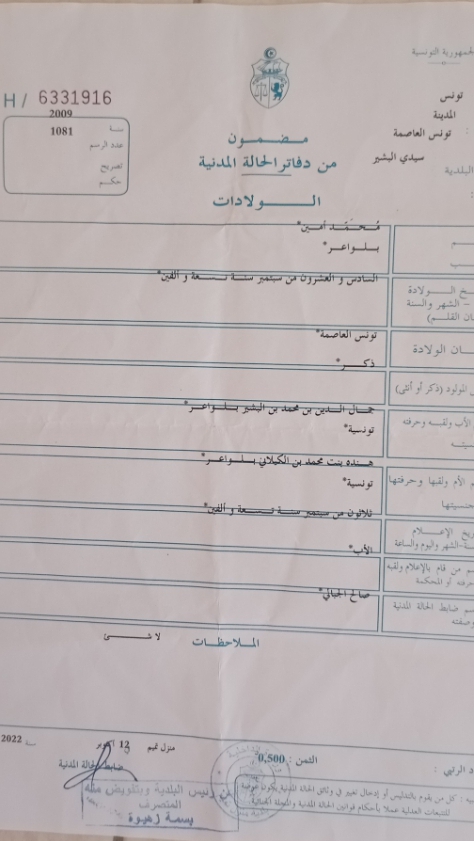 الجمهورية التونسية
تونس
المدينة
تونس العاصمة
سيدي البشير
البلدية
H/ 6331916
2009
سنة
1081
عدد الرسم
تصريح
حكم
مضمون
من دفاتر الحالة المدنية
الولادات
محمد أمين*
بلواعر*
السادس و العشرون من سبتمبر سنة تسعة و ألفين*
الولادة
الشهر والسنة
القلم)
تونس العاصمة*
ان الولادة
ذكر*
المولود (ذكر أو أنثى)
جمال الدين بن محمد بن البشير بلواعر*
الأب ولقبه وحرفته
تونسية*
هنده بنت محمد بن الكيلاني بلواعر*
الأم ولقبها وحرفتها
تونسية*
جنسيتها
ثلاثون من سبتمبر سنة تسعة و ألفين*
الإعلام
الشهر واليوم والساعة
الأب*
من قام بالإعلام ولقبه
حرفته أو المحكمة
صالح الجبالي*
ضابط الحالة المدنية
وصفته
الملاحظات
لا شئ
الرتبي :
الثمن : 0,500
منزل تميم في 12 أكتوبر 2022
ضابط الحالة المدنية
تنبيه : كل من يقوم بالتدليس أو إدخال تغيير في وثائق الحالة المدنية يكون عرضة
للتتبعات العدلية عملا بأحكام قوانين الحالة المدنية والمجلة الجنائية
رئيس البلدية وبتفويض منه
المتصرف
بسمة زهيوة